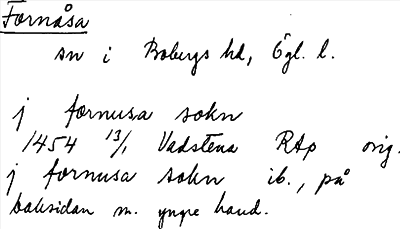 Fornåsa
sn i Bobergs hd, Ögl. l.
j fornusa sokn
1454 13/1 Vadstena RAp orig.
j fornusa sokn ib., på
baksidan m. yngre hand.